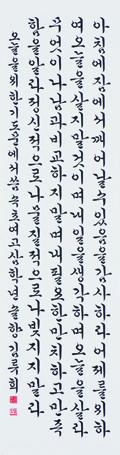 아침에 잠에서 깨어날 수 있음을 감사하라 어제를 위하
여 오늘을 살지 말 것이며 내일을 생각하며 오늘을 살라
무엇이나 남과 비교하지 말며 내 필요한 만치 하고 만족
함을 알라 정신적으로나 물질적으로나 빚지지 말라
오늘을 위한 기도 중에서